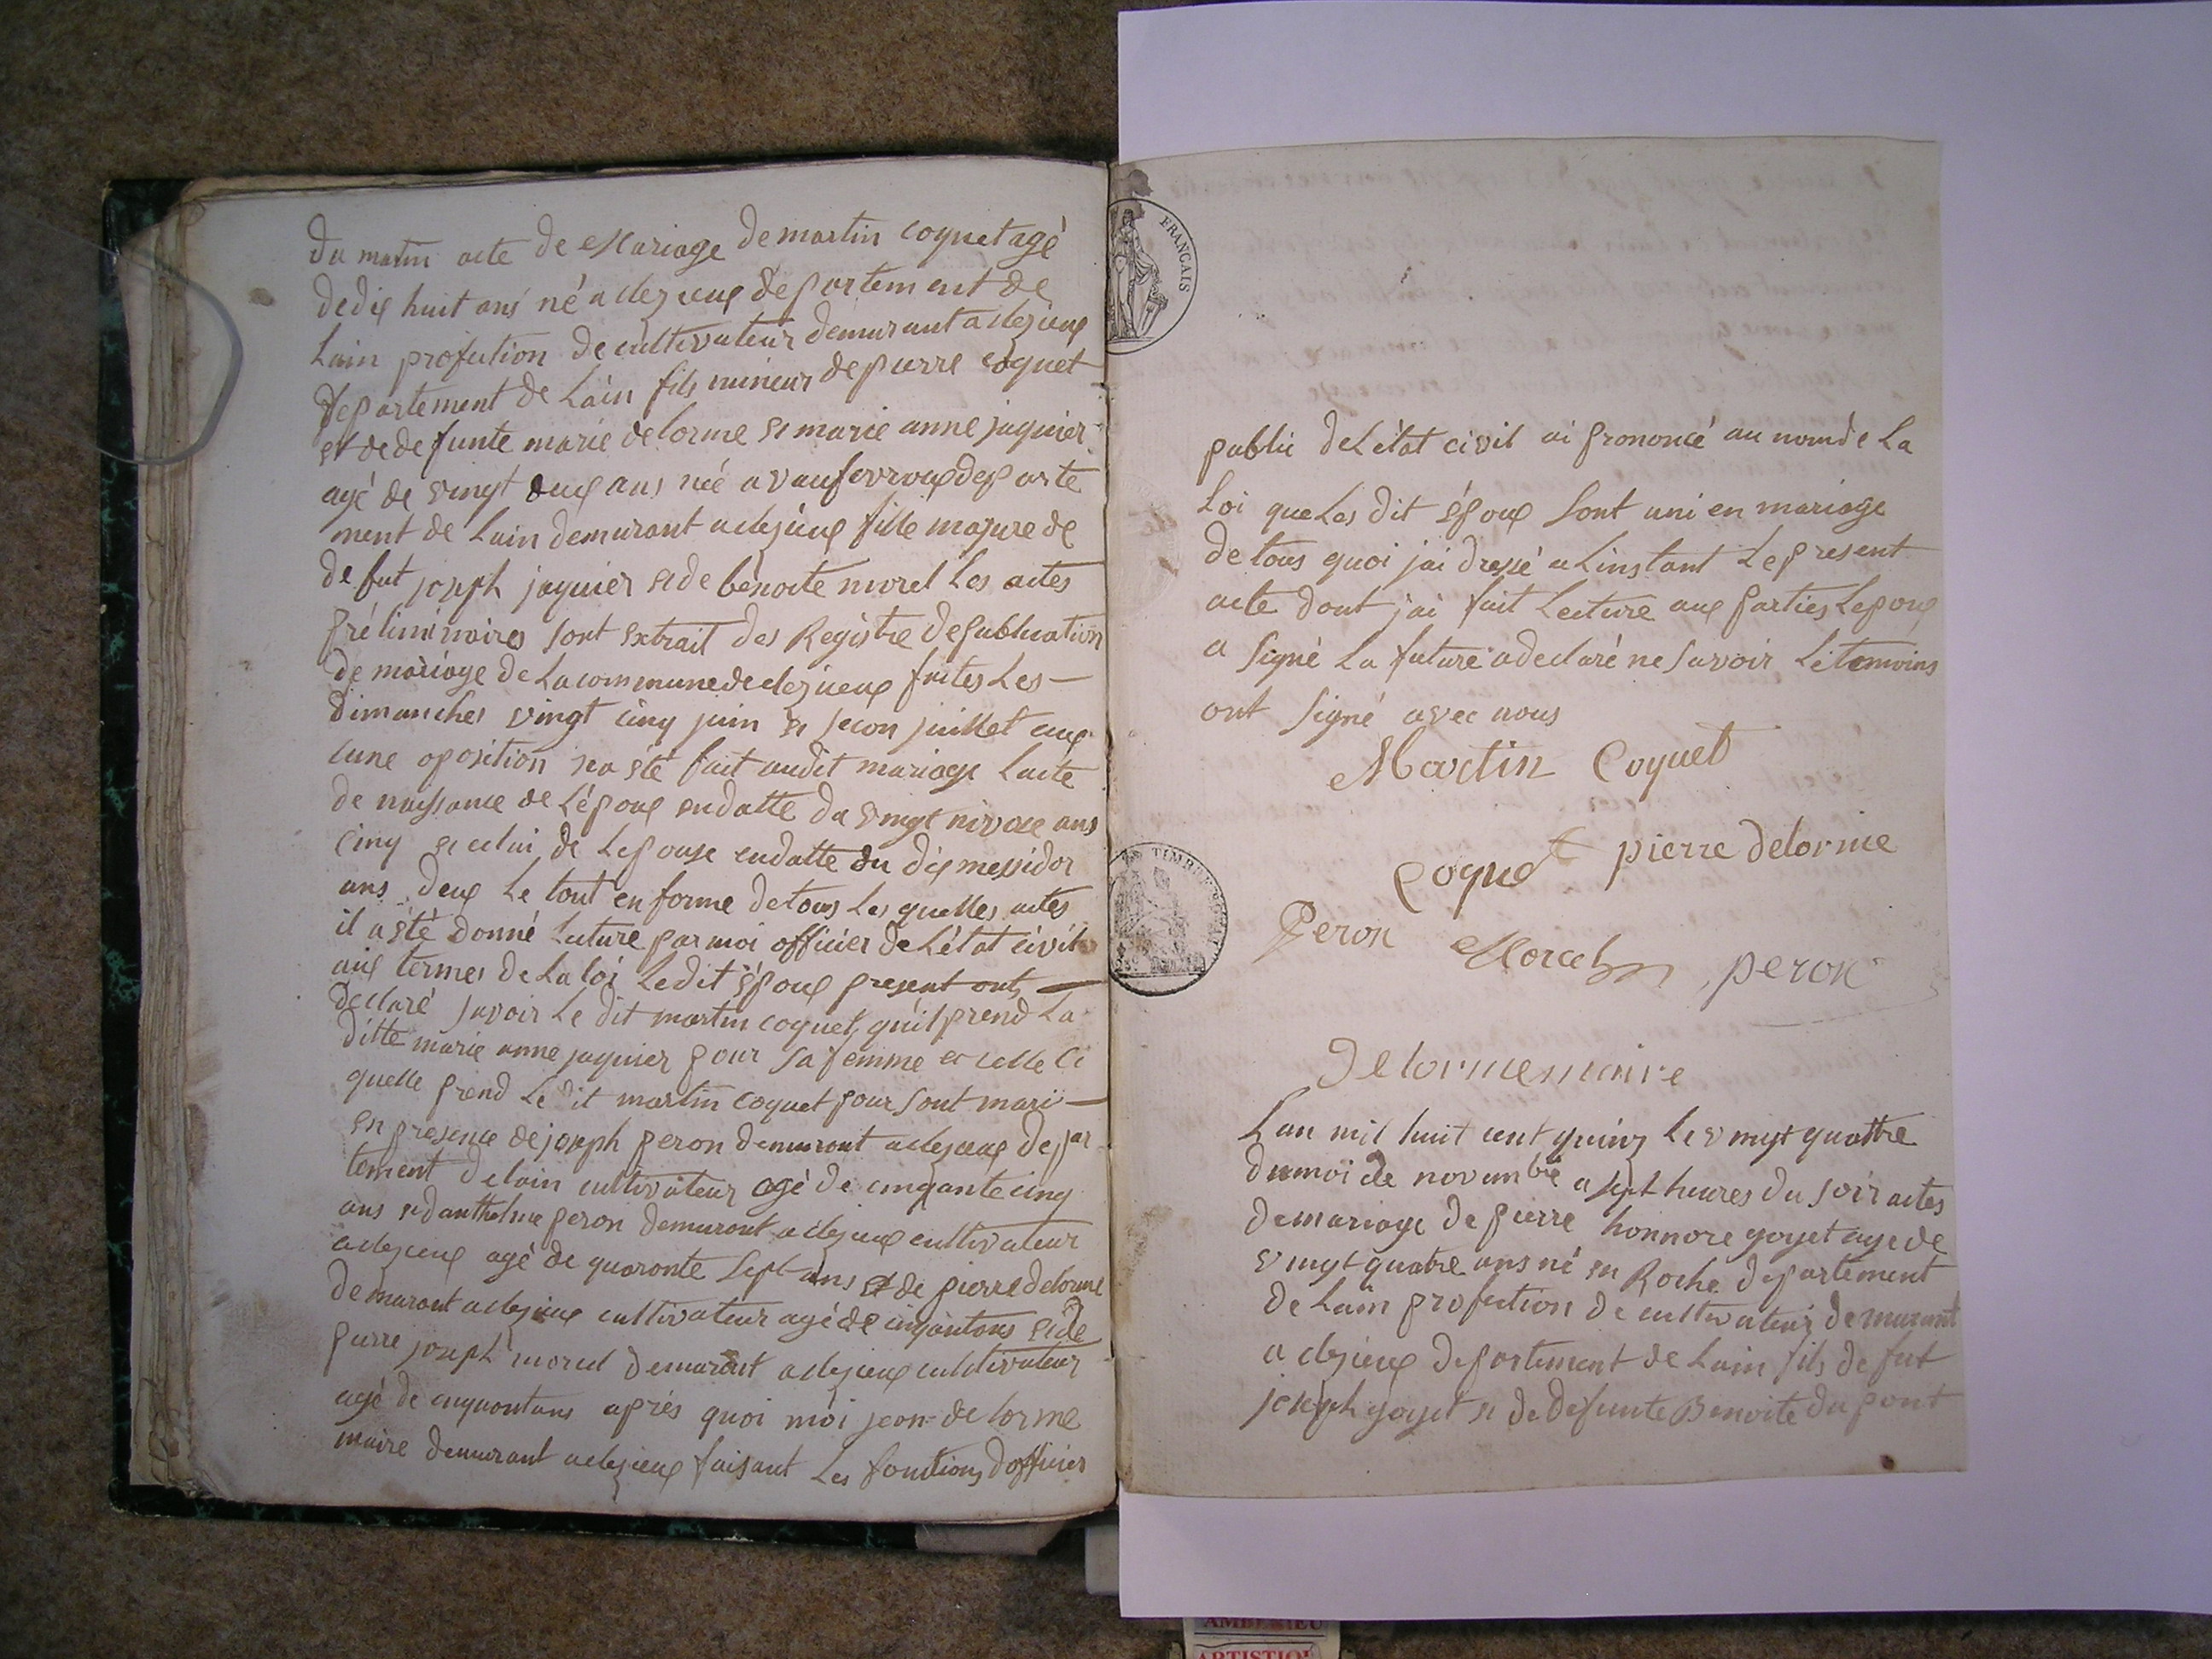 du matin acte de Mariage de martin coquet agé
de dix huit ans né a clezieux departement de
Lain profution de cultivateur demurant a clezieux
departement de Lain fils mineur de pierre coquet
et de defunte marie delorme et marie anne jaquier
agé de vingt deux ans né a vaux departe
ment de Lain demurant a clezieux fille majure de
defut joseph jaquier et de benoite morel Les actes
préliminaires sont extrait des Registre de publication
de mariage de La commune de clezieux faites Les
dimanches vingt cinq juin et secon juillet aux
cune oposition na été fait audit mariage Lacte
de naissance de Lépoux en datte du vingt nivose ans
cinq et celui de Lepouse en datte du dix messidor
ans deux Le tout en forme de tous Les quelles actes
il a été donné Lecture par moi officier de L'état civil
aux termes de La loi Ledit époux present ont
declaré savoir Le dit martin coquet, quil prend La
ditte marie anne jaquier pour sa femme et celle ci
quelle prend Le dit martin coquet pour sont mari
en presence de joseph peron demurant a clezieux depar
tement de lain cultivateur agé de cinqante cinq
ans et danthelme peron demurant a clezieux cultivateur
a clezieux agé de quaronte sept ans et de pierre delorme
demurant a clezieux cultivateur agé de cinqantans et de
pierre joseph morel demurant a clezieux cultivateur
agé de cinquontans aprés quoi moi jean delorme
maire demurant a clezieux faisant Les fonctions d'officier
FRANCAIS
public de L'état civil ai prononcé au nom de La
Loi que Les dit époux sont uni en mariage
de tous quoi jai dressé a Linstant Le present
acte dont jai fait Lecture aux parties Lepoux
a signé La future a declaré ne savoir Lé temoins
ont signé avec nous
Martin Coquet
Coquet pierre delorme
Peron Morel peron
TIMBRE
Delorme maire
Lan mil huit cent quinz Le vingt quattre
du moi de novembre a sept heures du soir actes
de mariage de pierre honnore goyet age de
vingt quatre ans né en Roche departement
de Lain profution de cultivateur demurant
a clezieux departement de Lain fils de fut
joseph goyet et de defunte Benoite dupont
AMBERIEU
ARTISTIQU